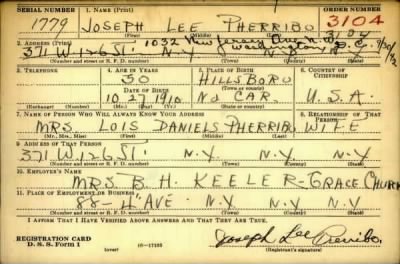 SERIAL NUMBER 1. NAME (Print) ORDER NUMBER
1779 JOSEPH LEE PHERRIBO 3104
(First) (Middle) (Last)
1032 New Jersey Ave N.W.
2. ADDRESS (Print) Washington, D.C.
371 W 126 St N.Y. N.Y.
(Number and street or R. F. D. number) (Town) (County) (State)
3. TELEPHONE 4. AGE IN YEARS 5. PLACE OF BIRTH 6. COUNTRY OF CITIZENSHIP
30 HILLSBORO
DATE OF BIRTH (Town or county)
10 27 1910 NO CAR. U.S.A.
(Exchange) (Number) (Mo.) (Day) (Yr.) (State or country)
7. NAME OF PERSON WHO WILL ALWAYS KNOW YOUR ADDRESS 8. RELATIONSHIP OF THAT PERSON
MRS LOIS DANIELS PHERRIBO WIFE
(Mr., Mrs., Miss) (First) (Middle) (Last)
9. ADDRESS OF THAT PERSON
371 W 126 St N.Y. N.Y. N.Y
(Number and street or R. F. D. number) (Town) (County) (State)
10. EMPLOYER'S NAME
MRS B. H. KEELER-GRACE CHURCH
11. PLACE OF EMPLOYMENT OR BUSINESS
88- 4" AVE N.Y. N.Y. N.Y
(Number and street or R. F. D. number) (Town) (County) (State)
I AFFIRM THAT I HAVE VERIFIED ABOVE ANSWERS AND THAT THEY ARE TRUE.
REGISTRATION CARD
D. S. S. Form 1 (over) 16-17105 Joseph Lee Pherribo
(Registrant's signature)